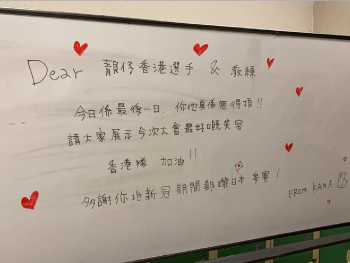 Dear 靚仔香港選手 & 教練
今日係最後一日，你地真係無得頂!!
請大家展示今次大會最好嘅笑容
香港隊 加油!!
多謝你地新冠期間都嚟日本參賽!
FROM KANA